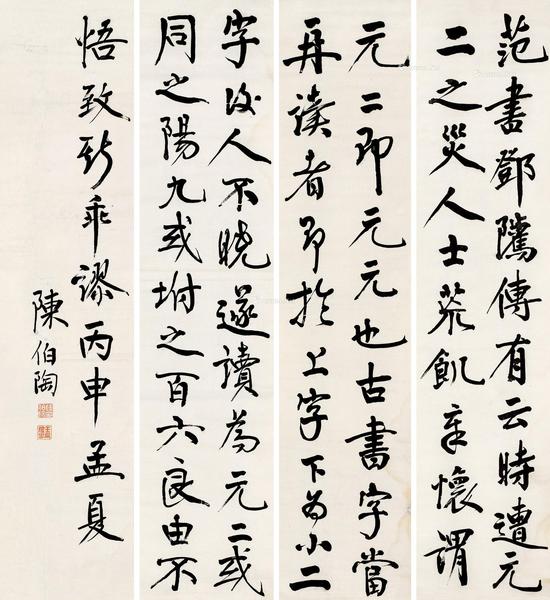 范書鄧騭傳有云時遭元
二之災人士荒飢章懷謂
元二即元元也古書字當
再讀者即於上字下為小二
字後人不曉遂讀為元二或
同之陽九或坿之百六良由不
悟致斯乖謬丙申孟夏
陳伯陶